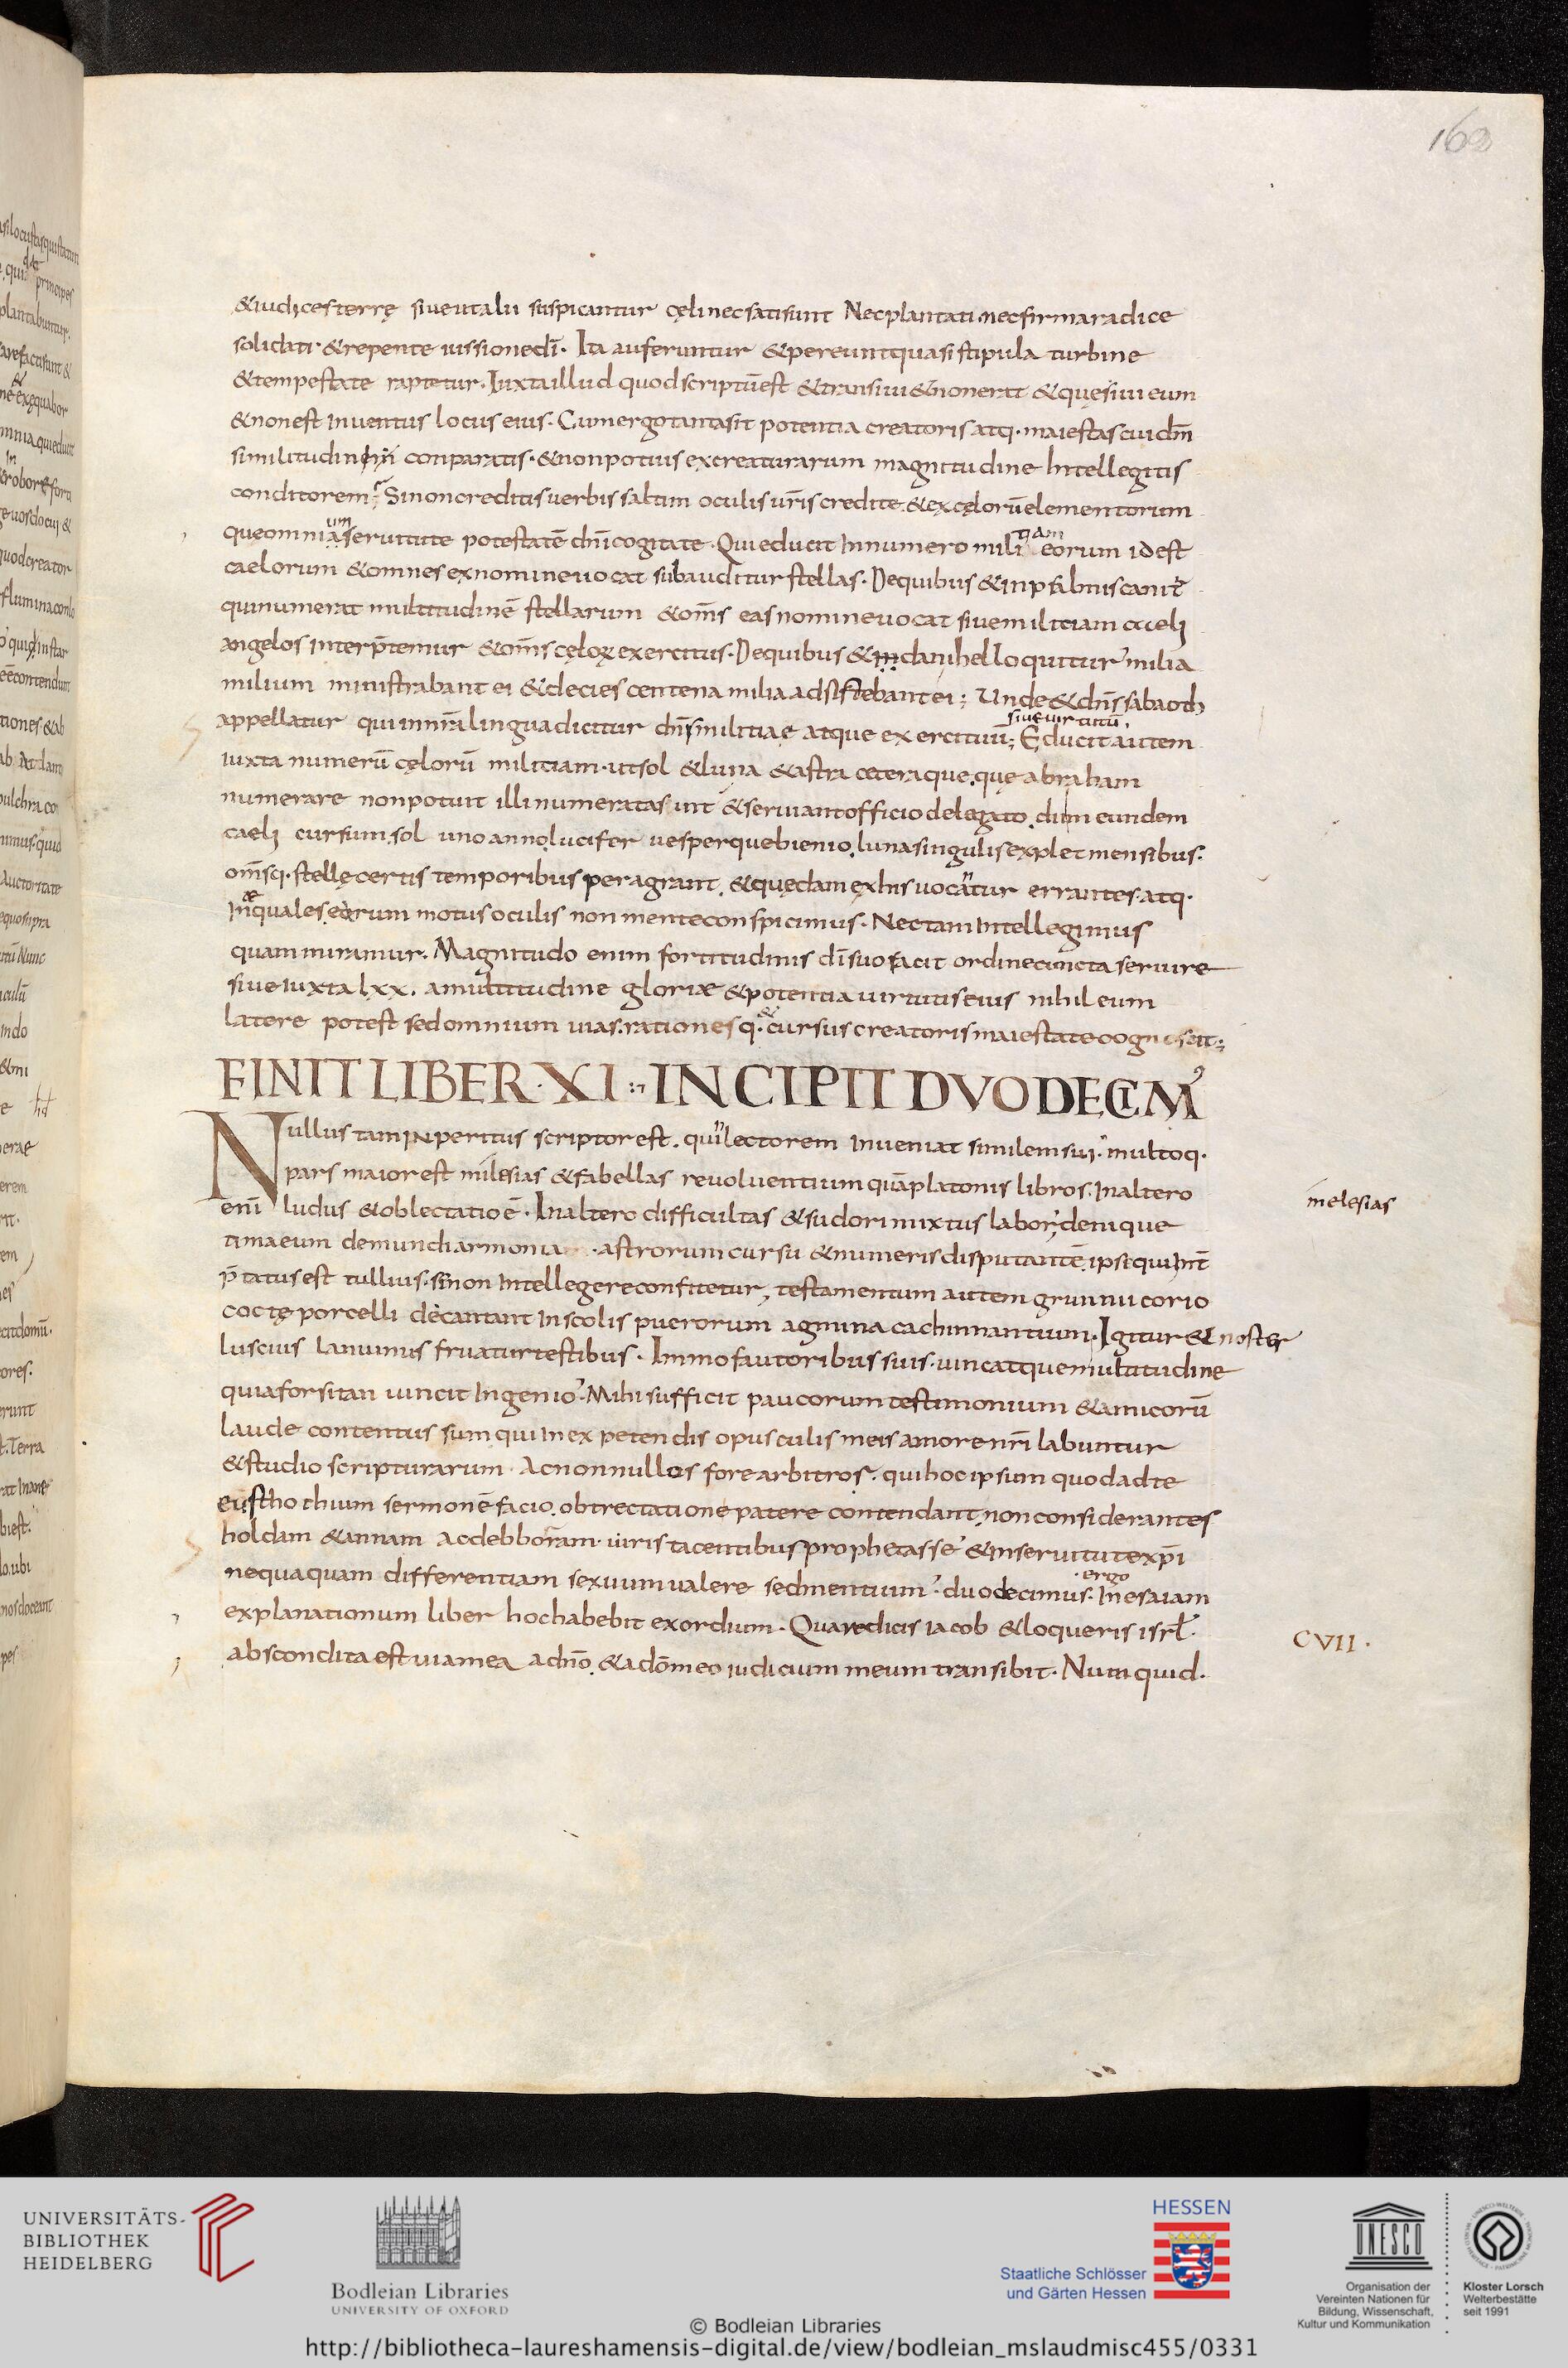 163
&iudices terrę siuent alii suspicantur cęli nec sati sunt Nec plantati nec firma radice
solidati· & repente iussione dī· Ita auferuntur & pereunt quasi stipula turbine
& tempestate raptetur· Iuxta illud quod scriptū est & transiui & non erat & quęsiui eum
& non est inuentus locus eius· Cum ergo tanta sit potentia creatoris atq· maiestas cui dm̄
similitudinem conparatis· & non potius ex creaturarum magnitudine Intellegitis
conditorem; Si non creditis uerbis saltim oculis ur̄is credite & ex cęlorū elementorum
que omnium seruitute potestatē dn̄i cogitate· Qui educit In numero militiam eorum id est
caelorum & omnes ex nomine uocat subauditur stellas· De quibus & in psalmis canit̄
qui numerat multitudinē stellarum & om̄s eas nomine uocat siue militiam caeli
angelos interp̄temur & om̄s cęloꝝ exercitus· De quibus & in danihel loquitur milia
milium ministrabant ei & decies centena milia adsistebant ei; Unde & dn̄s sabaoth
appellatur qui in nr̄a lingua dicitur dn̄s militiae atque exercituū; siue uirtutū, Educit autem
iuxta numerū cęlorū militiam· ut sol & luna & astra ceteraque, quę abraham
numerare non potuit illi numerata sunt & seruiant officio delegato, dum eundem
caeli cursum sol uno anno lucifer uesperque bienio, luna singulis explet mensibus·
om̄sq· stellę certis temporibus peragrant, & quędam ex his uocantur errantes· atq·
inæquales eorum motus oculis non mente conspicimus· Nec tam Intellegimus
quam miramur· Magnitudo enim fortitudinis dī suo facit ordine cuncta seruire
siue iuxta lxx. a multitudine gloriæ & potentia uirtutis eius nihil eum
latere potest sed omnium uias· rationesq· & cursus creatoris maiestate cognoscit;
FINIT LIBER·XI:⁊ INCIPIT DVODECIM'
Nullus tam inperitus scriptor est· qui lectorem inueniat similem sui· multoq·
pars maior est milesias & fabellas reuoluentium quā platonis libros· In altero
melesias
enī ludus & oblectatio ē· In altero difficultas & sudori mixtus labor, denique
timaeum de mundi armonia· astrorum cursu & numeris disputantē ipse qui Int̄
p̄tatus est tullius· se non Intellegere confitetur, testamentum autem grunnii corio
coctę porcelli decantant In scolis puerorum agmina cachinnantium· Igitur & noster
luscius lanuinus fruatur testibus· Immo fautoribus suis· uincatque multitudine
quia forsitan uincit Ingenio· Mihi sufficit paucorum testimonium & amicorū
laude contentus sum qui In expetendis opusculis meis amore nr̄i labuntur
& studio scripturarum· Ac nonnullos fore arbitros· qui hoc ipsum quod ad te
eusthochium sermonē facio, obtrectatione patere contendant, non considerantes
holdam & annam ac debboram· uiris tacentibus prophetasse· & in seruitute xp̄i
nequaquam differentiam sexuum ualere sed mentium· duodecimus· ergo· In esaiam
explanationum liber hoc habebit exordium· Quare dicis iacob & loqueris isrl·
CVII·
abscondita est uia mea a dn̄o, & a dō meo iudicium meum transibit· Numquid·
UNIVERSITÄTS-
BIBLIOTHEK
HEIDELBERG
Bodleian Libraries
UNIVERSITY OF OXFORD
HESSEN
Staatliche Schlösser
und Gärten Hessen
UNESCO
Organisation der
Vereinten Nationen für
Bildung, Wissenschaft,
Kultur und Kommunikation
Kloster Lorsch
Welterbestätte
seit 1991
© Bodleian Libraries
http://bibliotheca-laureshamensis-digital.de/view/bodleian_mslaudmisc455/0331